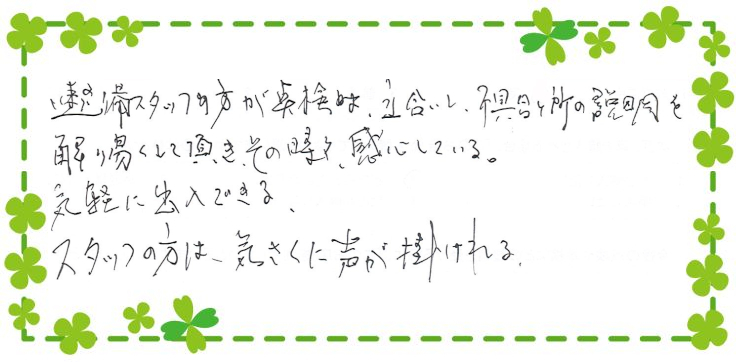 整備スタッフの方が点検時、立合いし、不具合ヶ所の説明を
解り易くして頂き、その時々、感心している。
気軽に出入できる、
スタッフの方は、気さくに声が掛けれる。